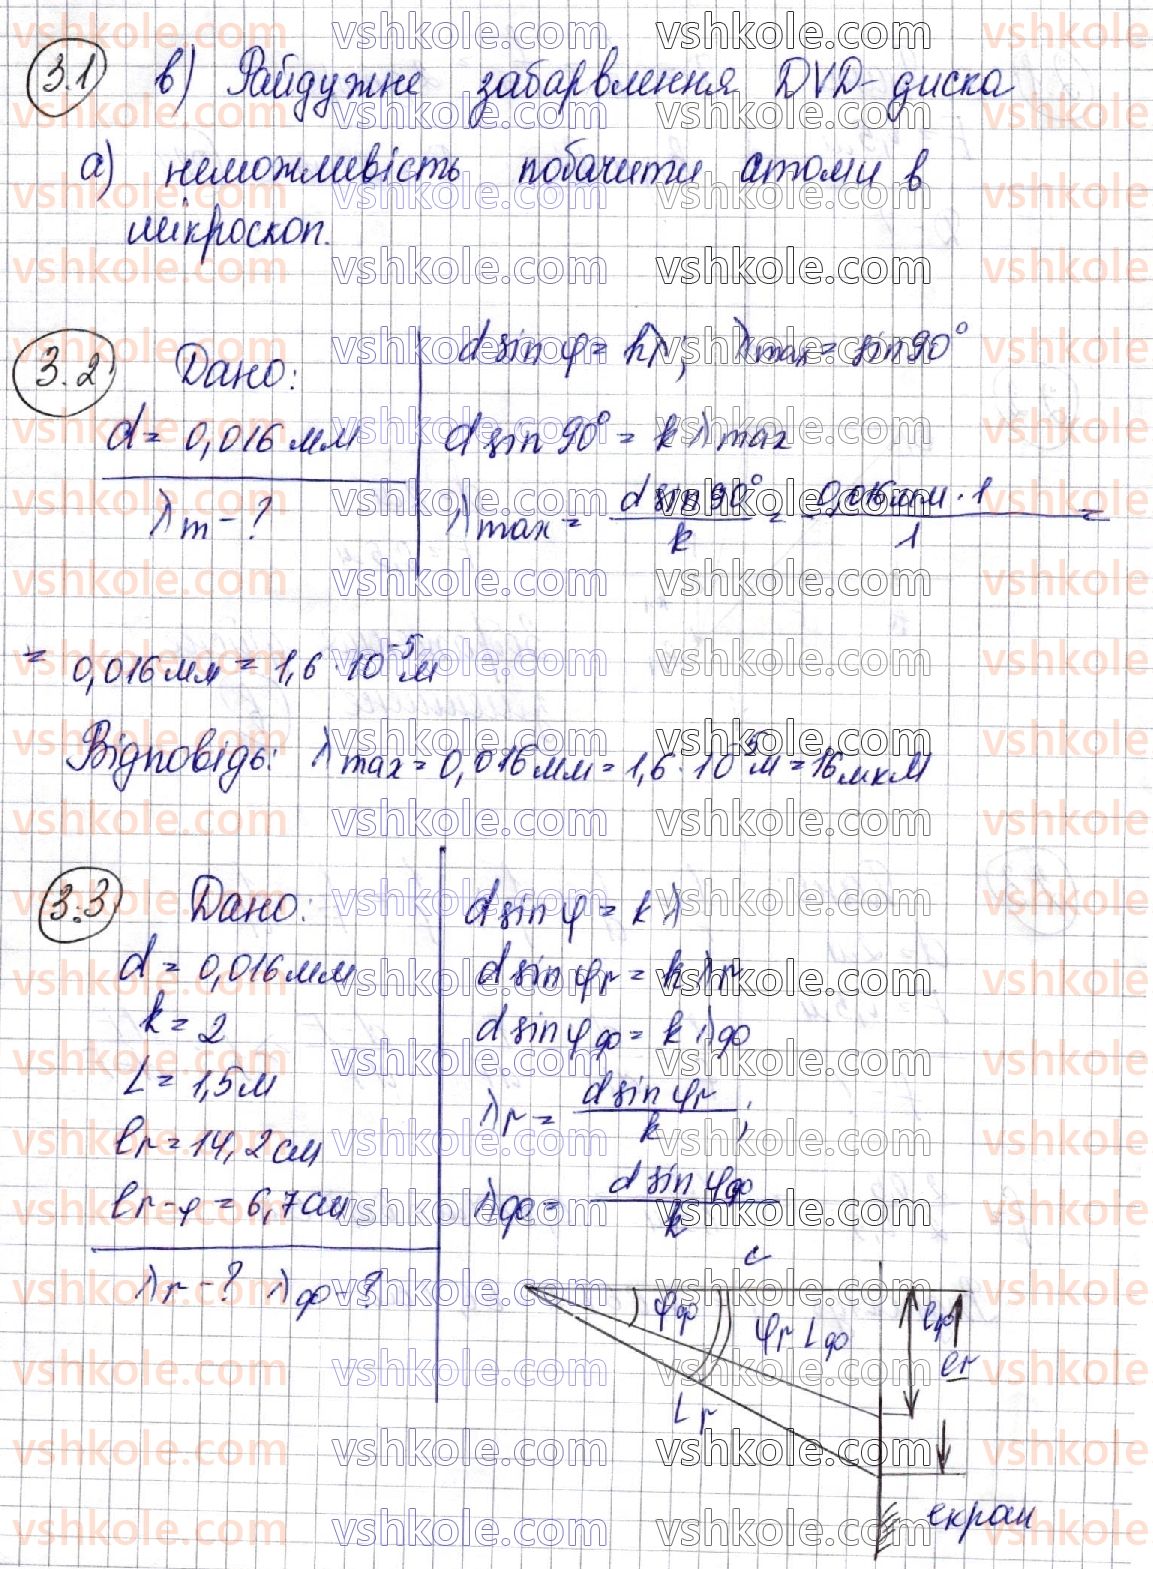 3.1 в) Райдужне забарвлення DVD-диска
а) неможливість побачити атоми в
мікроскоп.
3.2 Дано:
d = 0,016 мм
λm - ?
d sin φ = kλ; λmax = sin 90°
d sin 90° = k λmax
λmax = d sin 90° / k = 0,016 мм · 1 / 1 =
= 0,016 мм = 1,6 · 10⁻⁵ м
Відповідь: λmax = 0,016 мм = 1,6 · 10⁻⁵ м = 16 мкм
3.3 Дано:
d = 0,016 мм
k = 2
L = 1,5 м
lr = 14,2 см
lr-φ = 6,7 см
λr - ? λф - ?
d sin φ = k λ
d sin φr = k λr
d sin φф = k λф
λr = d sin φr / k ;
λф = d sin φф / k
φф
φr Lф
lr
Lr
екран
vshkole.com